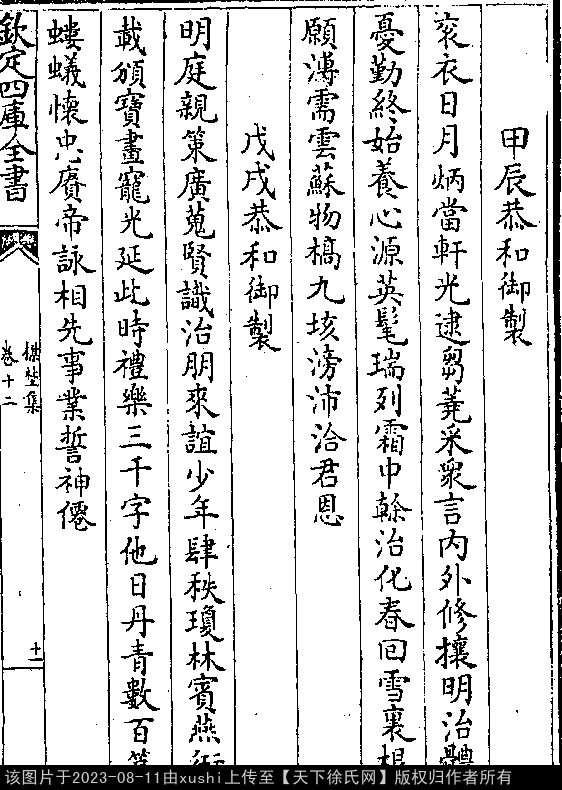 甲辰恭和御製
衮衣日月炳當軒光逮芻蕘采衆言内外修攘明治體
憂勤終始養心源英髦瑞列霜中榦治化春回雪裏根
願溥需雲蘇物槁九垓滂沛洽君恩
戊戌恭和御製
明庭親策廣蒐賢識治朋來誼少年肆秩瓊林賓燕衎
載頒寶畫寵光延此時禮樂三千字他日丹青數百
螻蟻懷忠賡帝詠相先事業誓神僊
欽定四庫全書
楳埜集
卷十二
十一
该图片于2023-08-11由xushi上传至【天下徐氏网】版权归作者所有